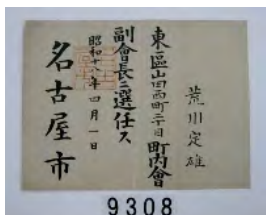 荒川定雄
東區山田西町二丁目町内會
副會長ニ選任ス
昭和十八年四月一日
名古屋市
9308